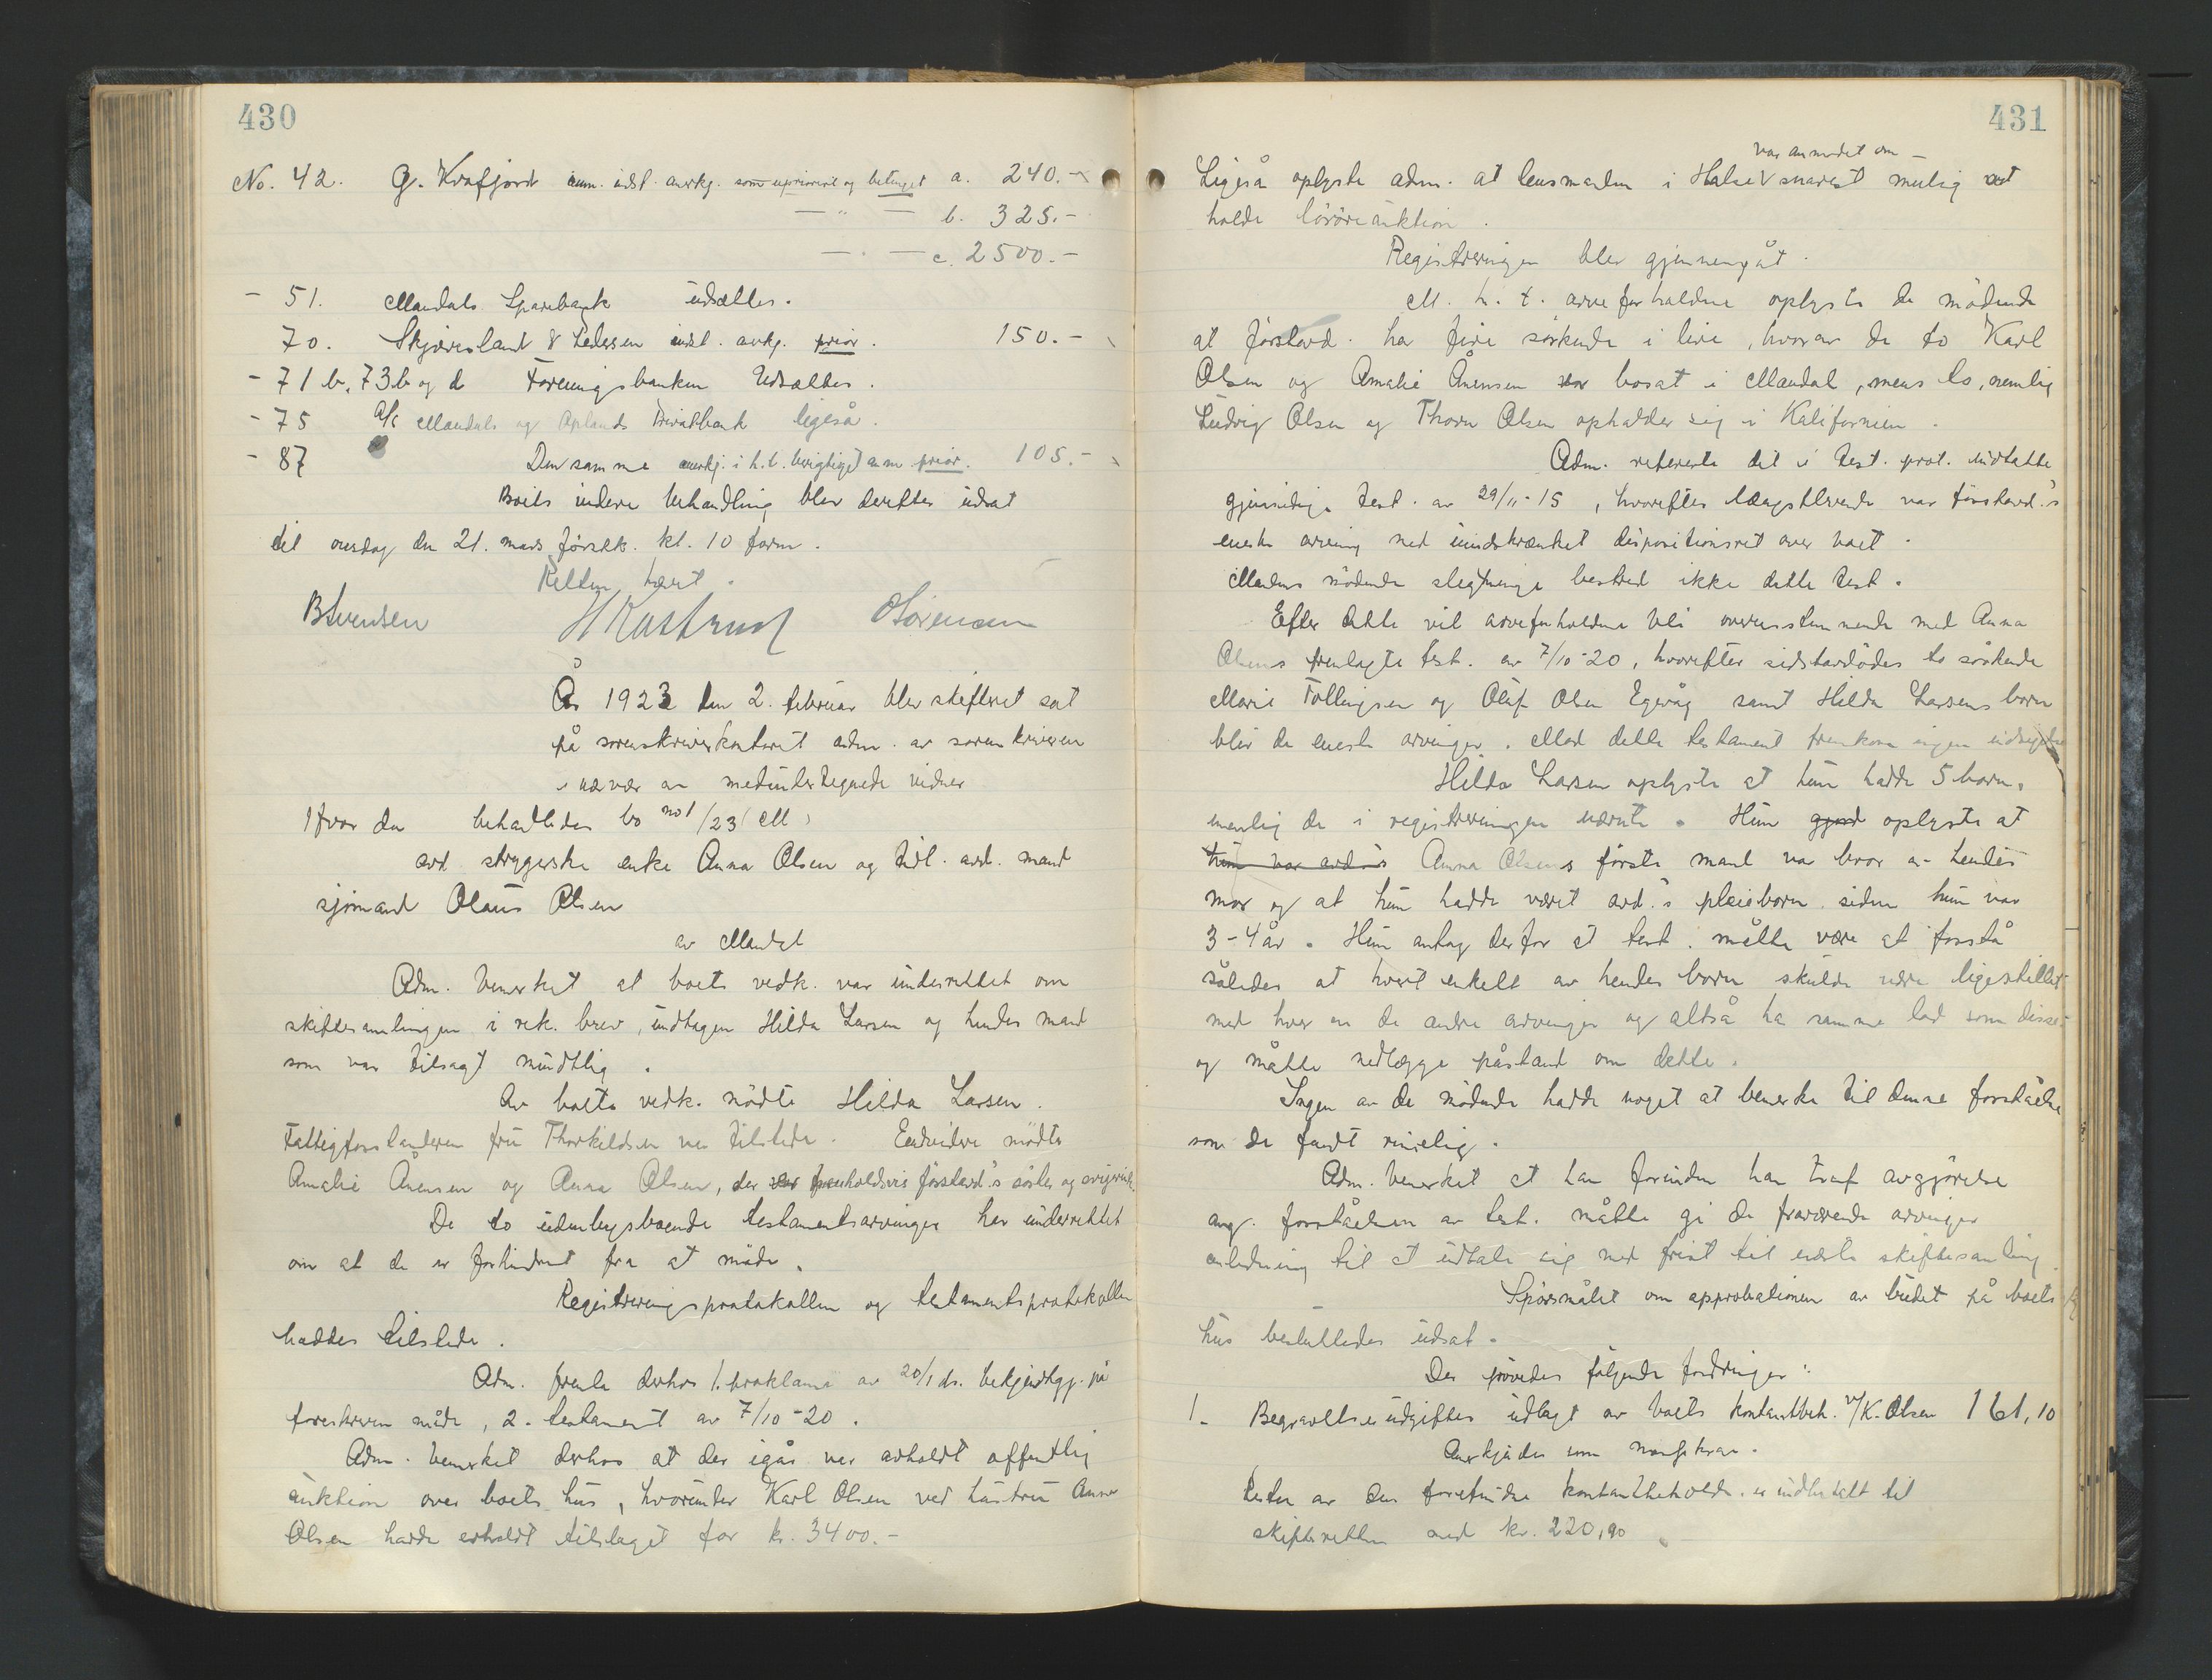 430
No. 42. G. Krafjord anm. udst. anerkj. som uprioritert og betinget a. 240.-
— " — b. 325.-
— . — c. 2500.-
- 51. Mandals Sparebank udsættes.
70. Skjæveslant & Pedersen udst. ankj. prior. 150.-
- 71 b, 73 b og d Foreningsbanken Udsættes.
- 75 A/S Mandals og Oplands Privatbank ligeså.
- 87 Den samme anerkj. i h.t. berigtiget anm. prior. 105.-
Boets videre behandling blev derefter udsat
til onsdag den 21. mars førstk. kl. 10 form.
Retten hævet.
B Svensen H Kastrud O Sørensen
År 1923 den 2. februar blev skifteret sat
på sorenskriverkontoret adm. av sorenskriveren
i nærvær av medundertegnede vidner
Hvor da behandledes bo no 1/23 M
avd. strygerske enke Anna Olsen og tidl. avd. mand
sjømand Olaus Olsen
av Mandal
Adm. bemerket at boets vedk. var underrettet om
skiftesamlingen i rek. brev, undtagen Hilda Larsen og hendes mand
som var tilsagt mundtlig.
Av boets vedk. mødte Hilda Larsen.
Fattigforstanderen fru Thorkildsen var tilstede. Endvidere mødte
Amalie Ånensen og Anna Olsen, der var henholdsvis førstavd's søster og svigerinde.
De to udenbysboende testamentsarvinger har underrettet
om at de er forhindret fra at møde.
Registreringsprotokollen og testamentsprotokollen
haddes tilstede.
Adm. fremla derhos 1. proklama av 20/1 ds. bekjendtgj. på
foreskreven måde, 2. testament av 7/10-20.
Adm. bemerket derhos at der igår var avholdt offentlig
auktion over boets hus, hvorunder Karl Olsen ved hustru Anna
Olsen hadde erholdt tilslaget for kr. 3400.-
431
var anmodet om
Ligeså oplyste adm. at lensmanden i Halse V snarest mulig at
holde løsøreauktion.
Registreringen blev gjennemgåt.
M. h. t. arveforholdene oplyste de mødende
at førstavd. har fire søskende i live, hvorav de to Karl
Olsen og Amalie Ånensen var bosat i Mandal, mens to, nemlig
Ludvig Olsen og Thora Olsen opholder sig i Kalifornien.
Adm. refererte det i test. prot. indtatte
gjensidige test. av 29/11-15, hvorefter længstlevende var førstavd.'s
eneste arving med uindskrænket dispositionsret over boet.
Mandens mødende slegtninge bestred ikke dette test.
Efter dette vil arveforholdene bli overensstemmende med Anna
Olsens fremlagte test. av 7/10-20, hvorefter sidstavdødes to søskende
Marie Tollingsen og Oluf Olsen Egevåg samt Hilda Larsens born
blir de eneste arvinger. Mod dette testament fremkom ingen indsigelse
Hilda Larsen oplyste at hun hadde 5 born,
nemlig de i registreringen nævnte. Hun gjord oplyste at
hun var avd.'s Anna Olsens første mand var bror av hendes
mor og at hun hadde været avd.'s pleiebarn siden hun var
3-4 år. Hun antog derfor at test. måtte være at forstå
således at hvert enkelt av hendes born skulde være ligestillet
med hver av de andre arvinger og altså ha samme lod som disse
og måtte nedlægge påstand om dette.
Ingen av de mødende hadde noget at bemerke til denne forståelse
som de fandt rimelig.
Adm. bemerket at han forinden han traf avgjørelse
ang. forståelsen av test. måtte gi de fraværende arvinger
anledning til at udtale sig med frist til næste skiftesamling.
Spørsmålet om approbationen av budet på boets
hus besluttedes udsat.
Der prøvedes følgende fordringer:
1. Begravelsesudgifter udlagt av boets kontantbeh. v/K. Olsen 161,10
Anerkjendes som massekrav.
Resten av den forefundne kontantbeholdn. er indbetalt til
skifteretten med kr. 220,90